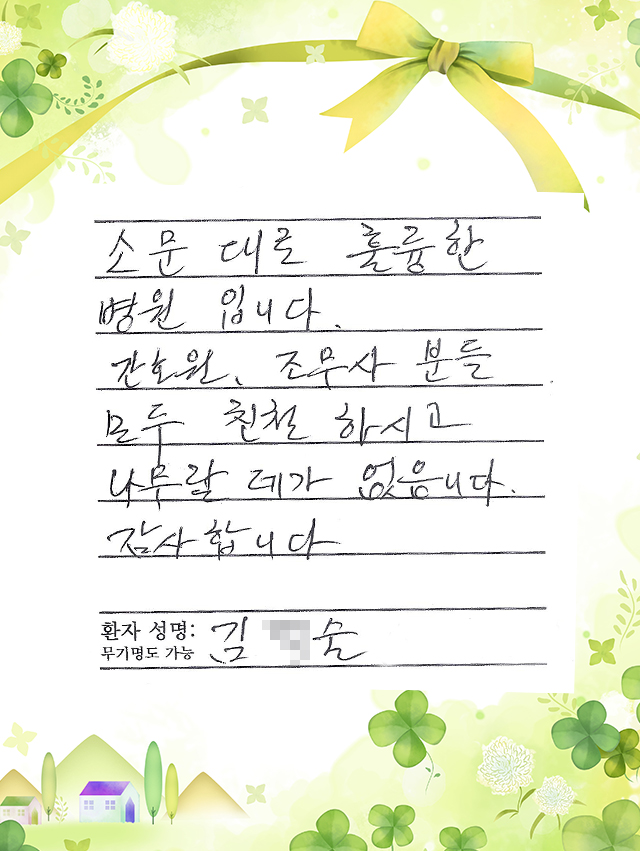 소문 대로 훌륭한
병원 입니다.
간호원, 조무사 분들
모두 친철 하시고
나무랄 데가 없음니다.
감사합니다
환자 성명: 김 술
무기명도 가능